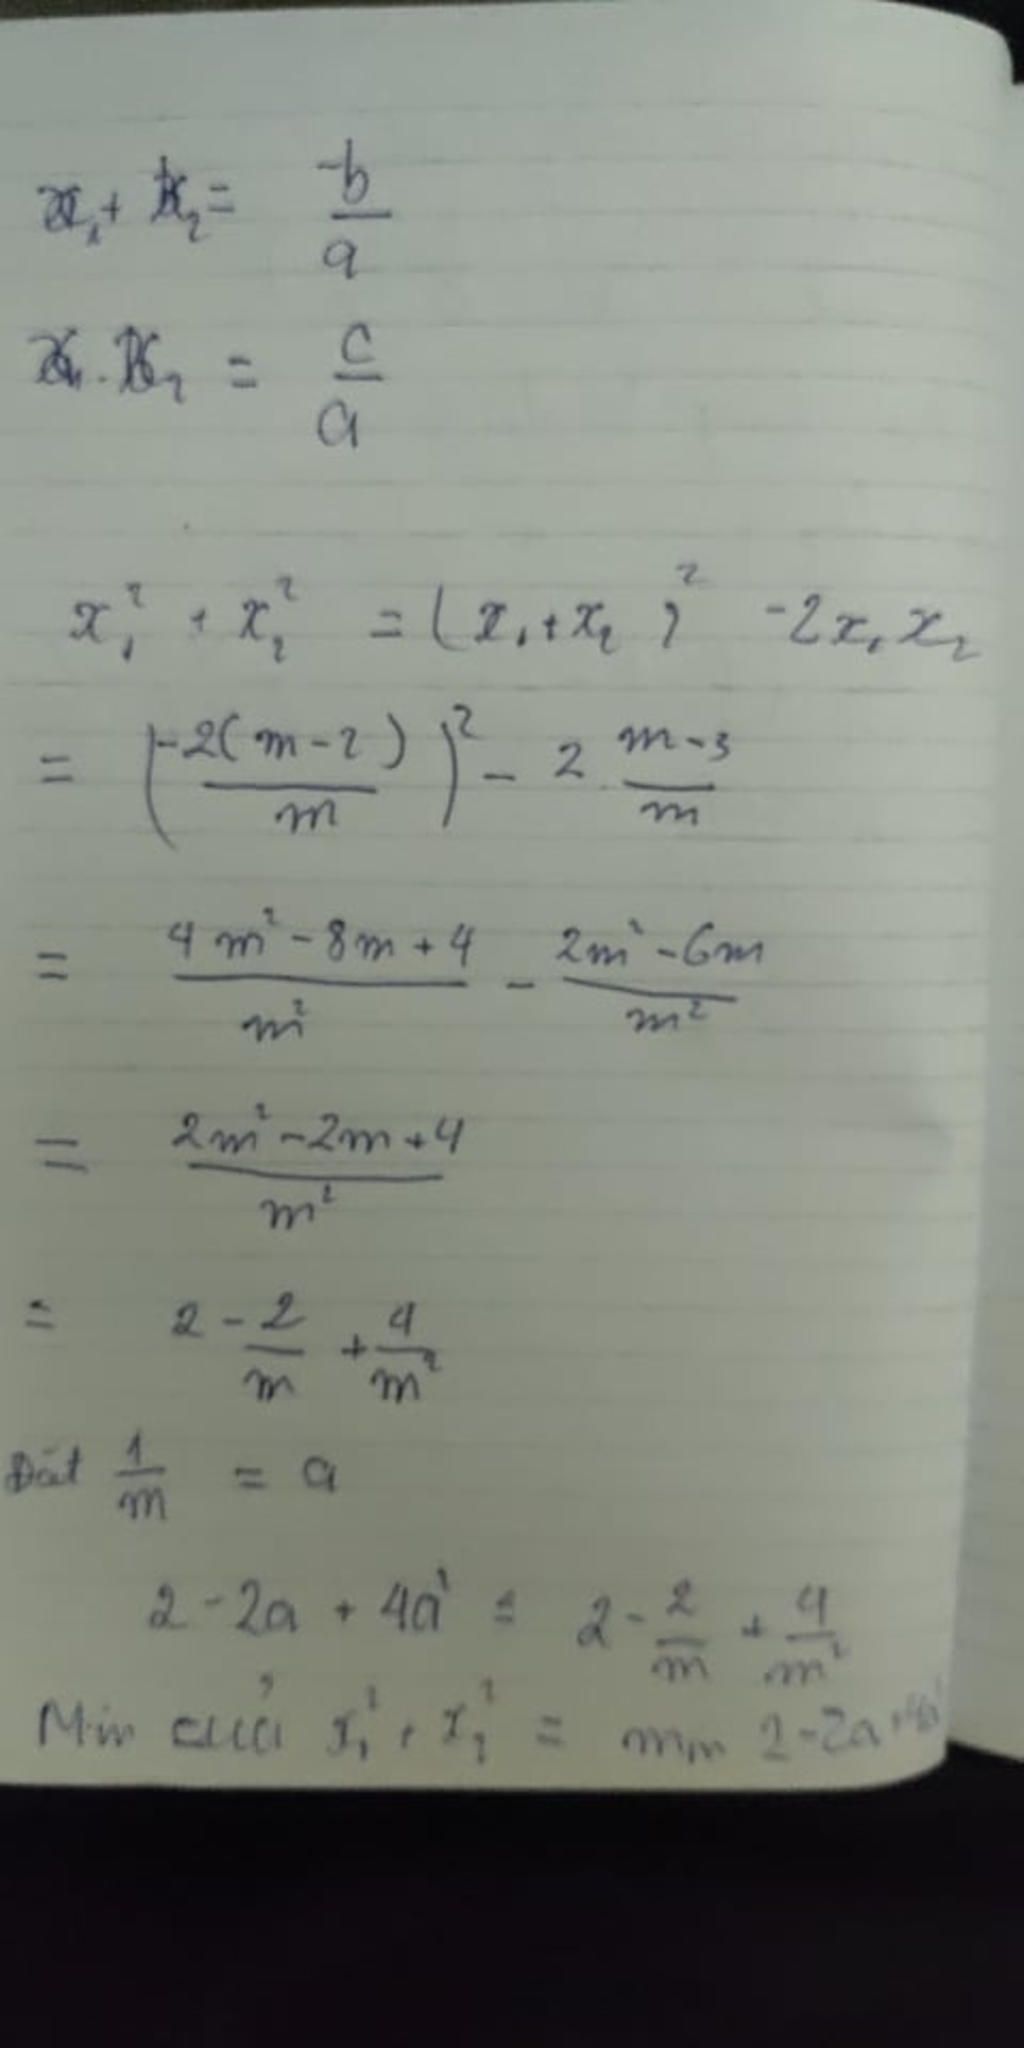 x₁ + x₂ = -b/a
x₁ . x₂ = c/a
x₁² + x₂² = (x₁ + x₂)² - 2x₁x₂
= (-2(m-2)/m)² - 2 . (m-3)/m
= (4m² - 8m + 4)/m² - (2m² - 6m)/m²
= (2m² - 2m + 4)/m²
= 2 - 2/m + 4/m²
Đặt 1/m = a
2 - 2a + 4a² = 2 - 2/m + 4/m²
Min của x₁² + x₂² = min 2 - 2a + 4a²